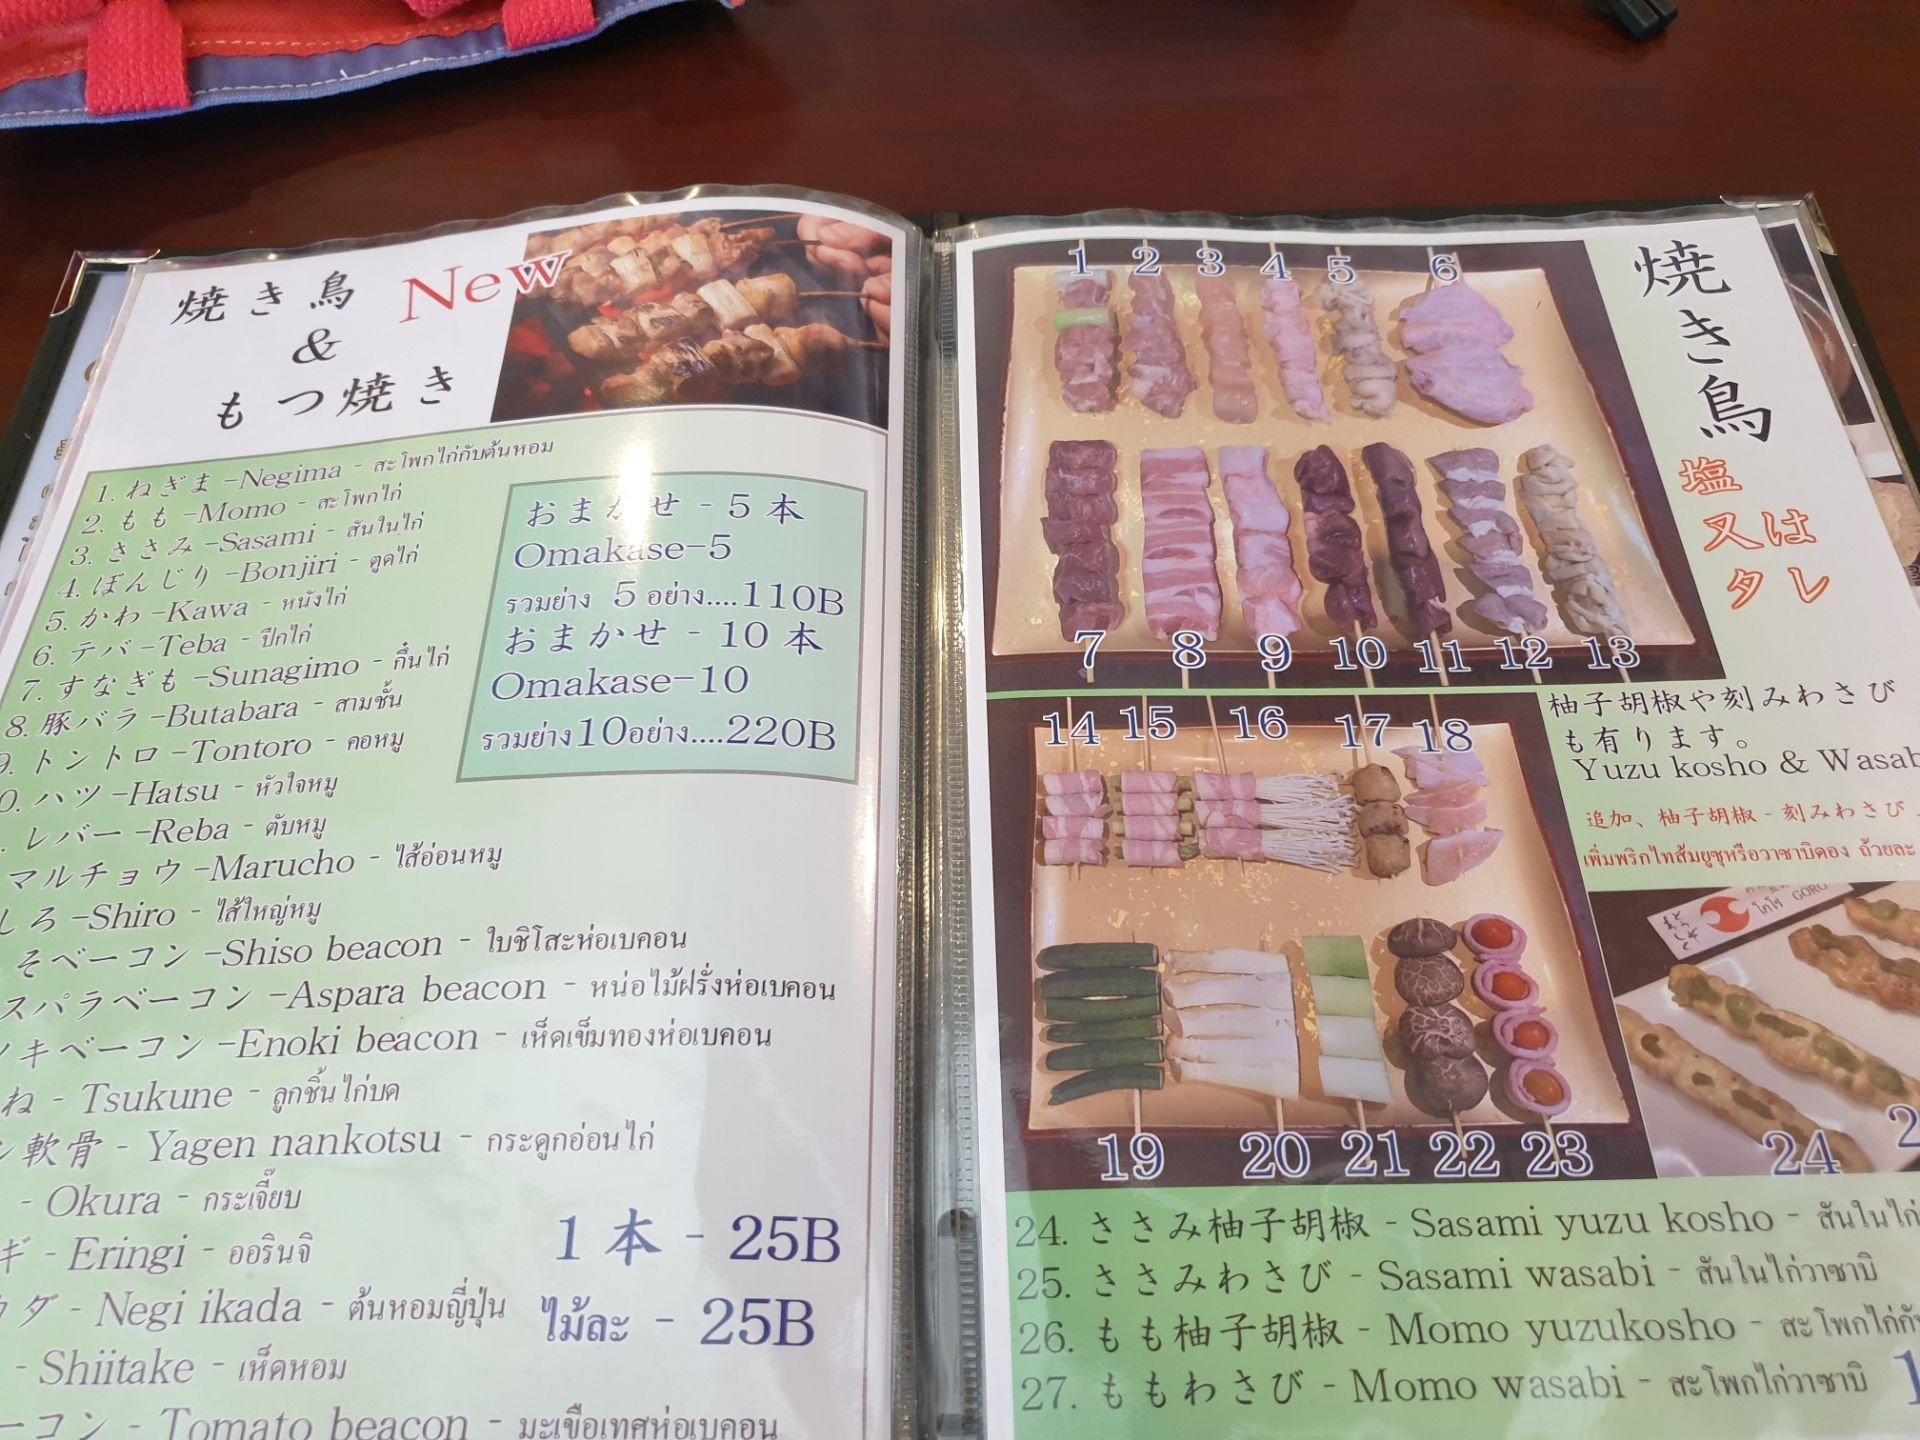 焼き鳥 New
&
もつ焼き
1. ねぎま -Negima - สะโพกไก่กับต้นหอม
2. もも -Momo - สะโพกไก่
3. ささみ -Sasami - สันในไก่
4. ぼんじり -Bonjiri - ตูดไก่
5. かわ -Kawa - หนังไก่
6. テバ -Teba - ปีกไก่
7. すなぎも -Sunagimo - กึ๋นไก่
8. 豚バラ -Butabara - สามชั้น
9. トントロ -Tontoro - คอหมู
0. ハツ -Hatsu - หัวใจหมู
. レバー -Reba - ตับหมู
マルチョウ -Marucho - ไส้อ่อนหมู
しろ -Shiro - ไส้ใหญ่หมู
そベーコン -Shiso beacon - ใบชิโสะห่อเบคอน
スパラベーコン -Aspara beacon - หน่อไม้ฝรั่งห่อเบคอน
ノキベーコン -Enoki beacon - เห็ดเข็มทองห่อเบคอน
ね - Tsukune - ลูกชิ้นไก่บด
ン軟骨 - Yagen nankotsu - กระดูกอ่อนไก่
- Okura - กระเจี๊ยบ
ギ - Eringi - ออรินจิ
カダ - Negi ikada - ต้นหอมญี่ปุ่น
- Shiitake - เห็ดหอม
ーコン - Tomato beacon - มะเขือเทศห่อเบคอน
おまかせ - 5本
Omakase-5
รวมย่าง 5 อย่าง....110B
おまかせ - 10本
Omakase-10
รวมย่าง10อย่าง....220B
1本 - 25B
ไม้ละ - 25B
1 2 3 4 5 6
7 8 9 10 11 12 13
焼き鳥
塩
又は
タレ
14 15 16 17 18
19 20 21 22 23
柚子胡椒や刻みわさび
も有ります。
Yuzu kosho & Wasab
追加、柚子胡椒 - 刻みわさび
เพิ่มพริกไทส้มยูซุหรือวาซาบิดอง ถ้วยละ
โกโร GORO
24 2
24. ささみ柚子胡椒 - Sasami yuzu kosho - สันในไก่
25. ささみわさび - Sasami wasabi - สันในไก่วาซาบิ
26. もも柚子胡椒 - Momo yuzukosho - สะโพกไก่กับ
27. ももわさび - Momo wasabi - สะโพกไก่วาซาบิ
1